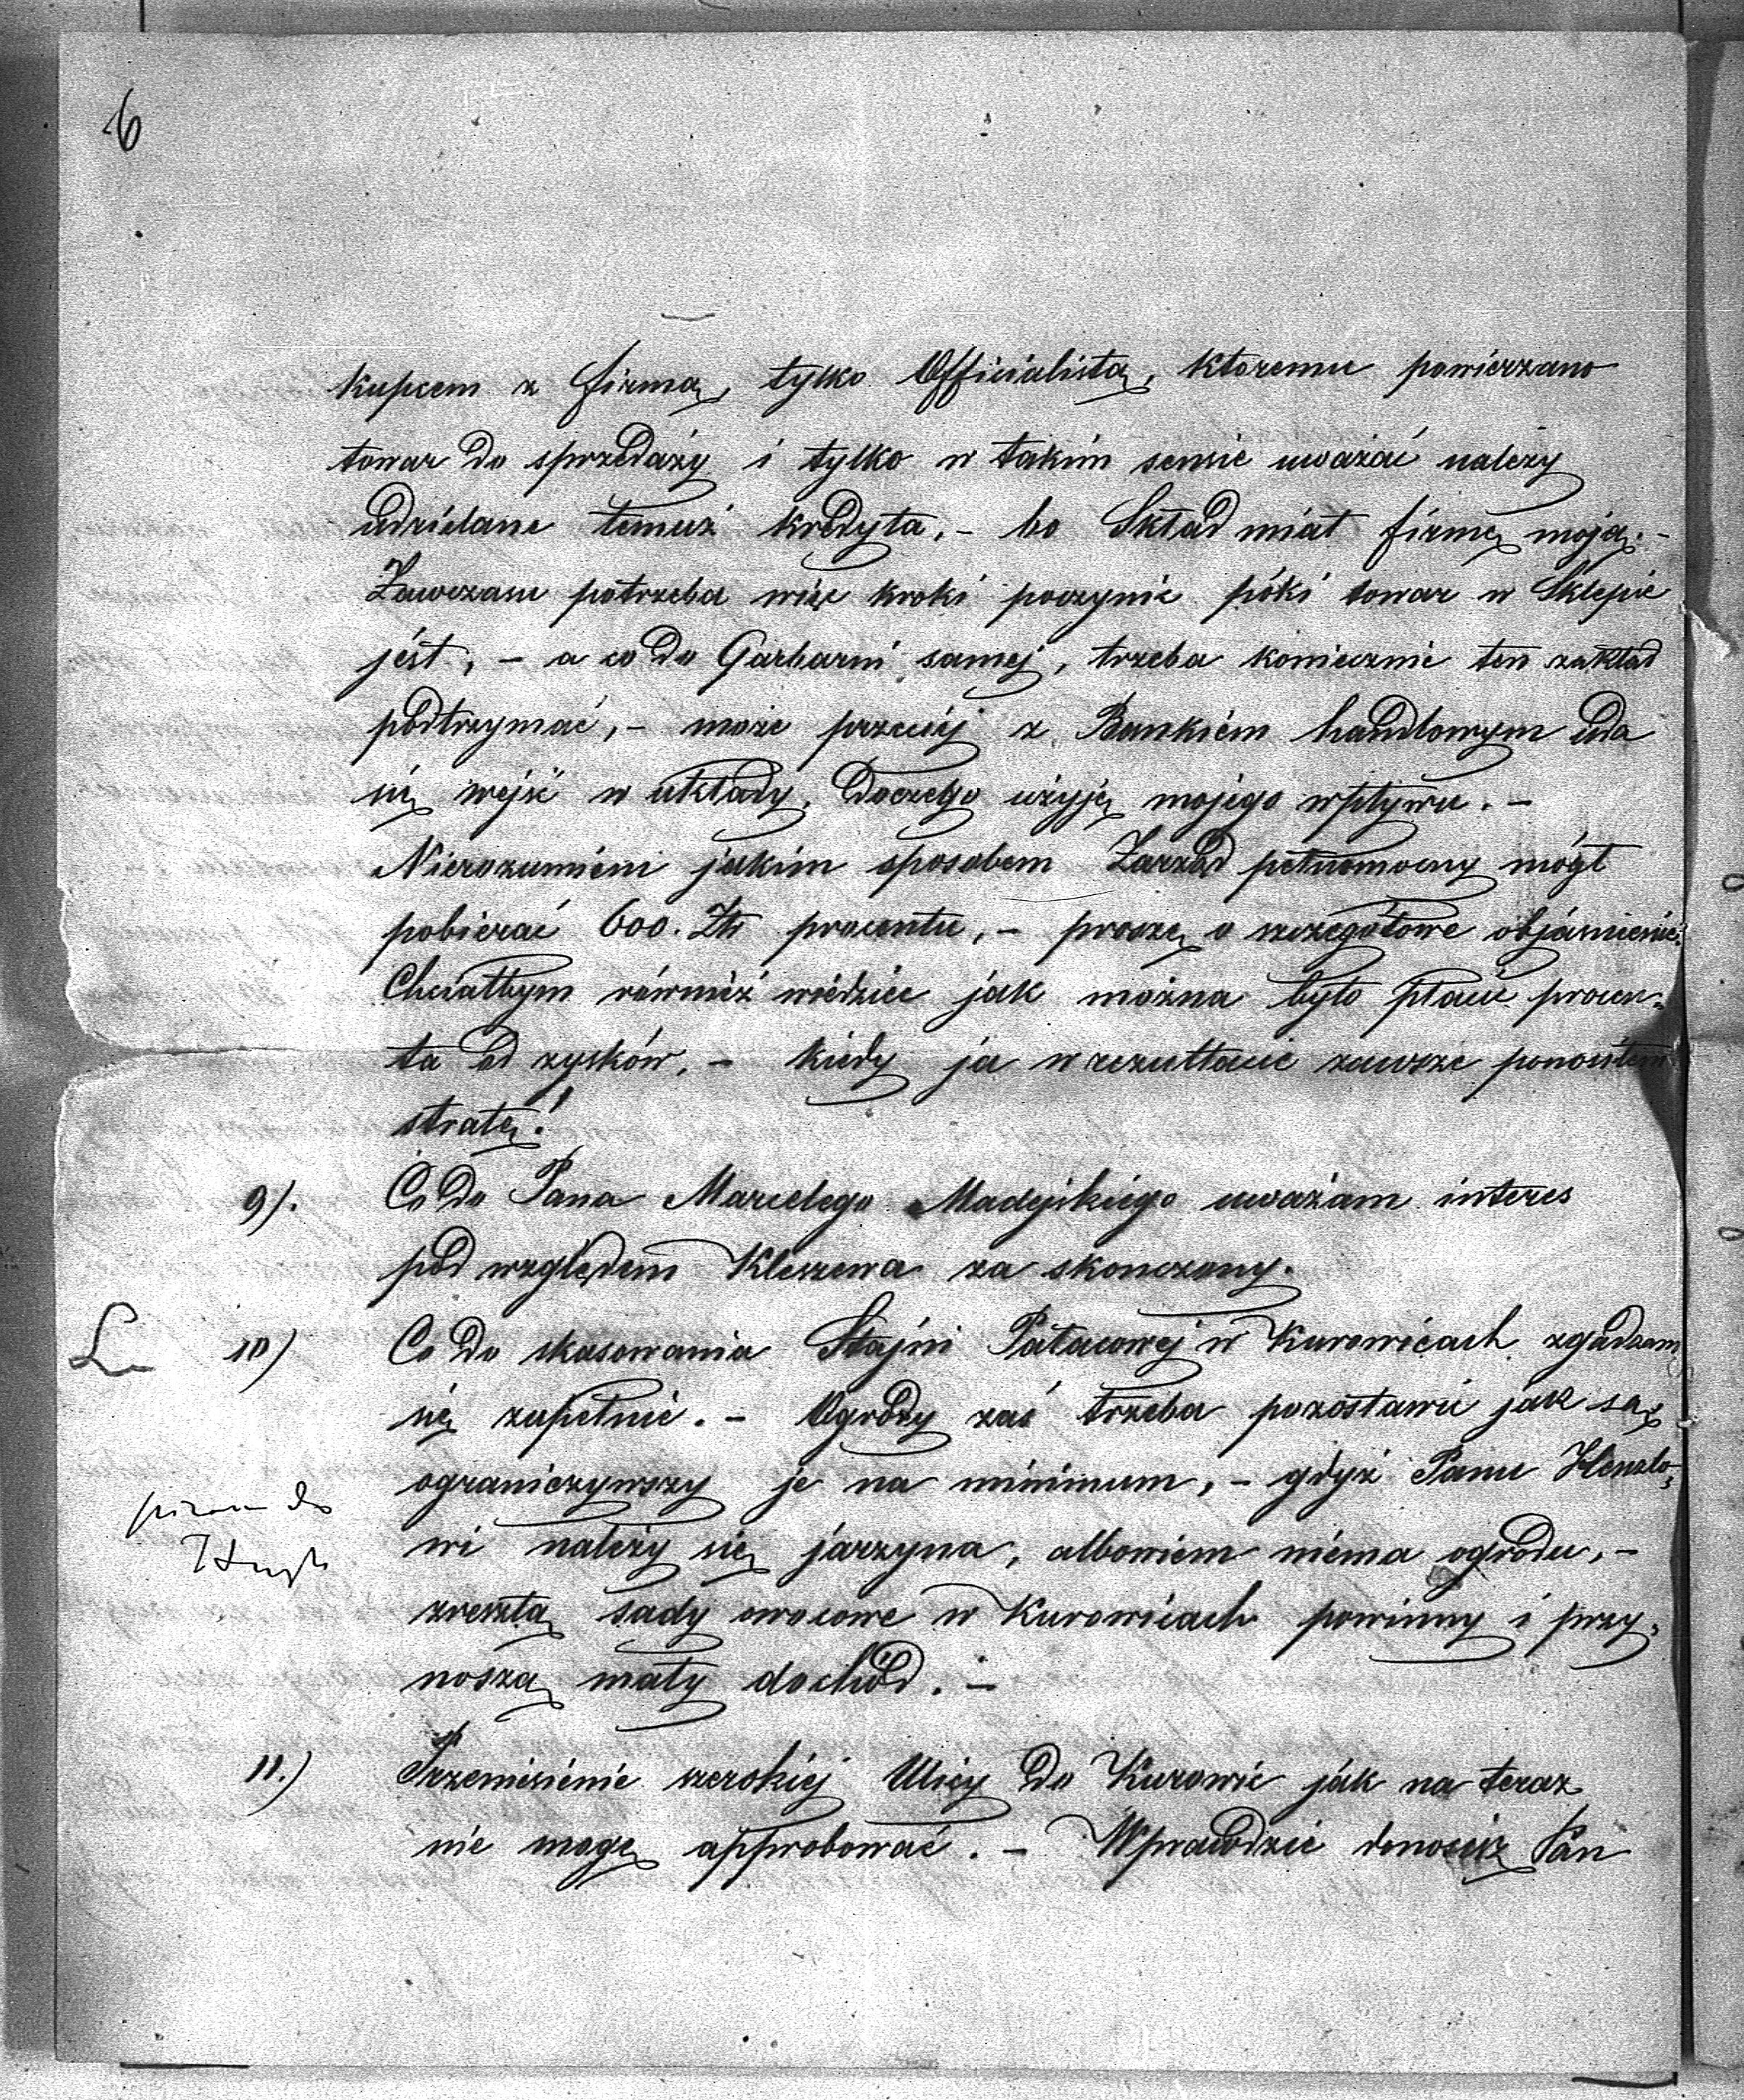 6
kupcem z firmą, tylko Officialistą, ktoremu powierzano
towar do sprzedaży i tylko w takim sensie uważać należy
udzielane temuż kredyta, - bo Skład miał firmę moją. -
Zawczasu potrzeba więc kroki poczynić póki towar w Sklepie
jest, - a co do Garbarni samej, trzeba koniecznie ten zakład
podtrzymać, - może przeciéj z Bankiem handlowym uda
się wejść w układy, doczego użyję mojego wpływu. -
Nierozumiem jakim sposobem Zarząd pełnomocny mógł
pobierać 600. Zł procentu, - proszę o szczegółowe objaśnienie.
Chciałbym również wiedzieć jak można było płacić procen=
ta od zysków, - kiedy ja w rezultacie zawsze ponosiłem
stratę!
9). Co do Pana Marcelego Madejskiego uważam interes
pod względem Kleszewa za skonczony.
10) Co do skasowania Stajni Pałacowej w Kurowicach zgadzam
się zupełnie. - Ogrody zaś trzeba pozostawić jak są,
ograniczywszy je na minimum, - gdyż Panu Henzlo=
wi należy się jarzyna, albowiem niema ogrodu, -
zresztą sady owocowe w Kurowicach powinny i przy=
noszą mały dochód. -
11.) Przeniesienie szerokiej Ulicy do Kurowic jak na teraz
nie mogę approbować. - Wprawdzie donosisz Pan